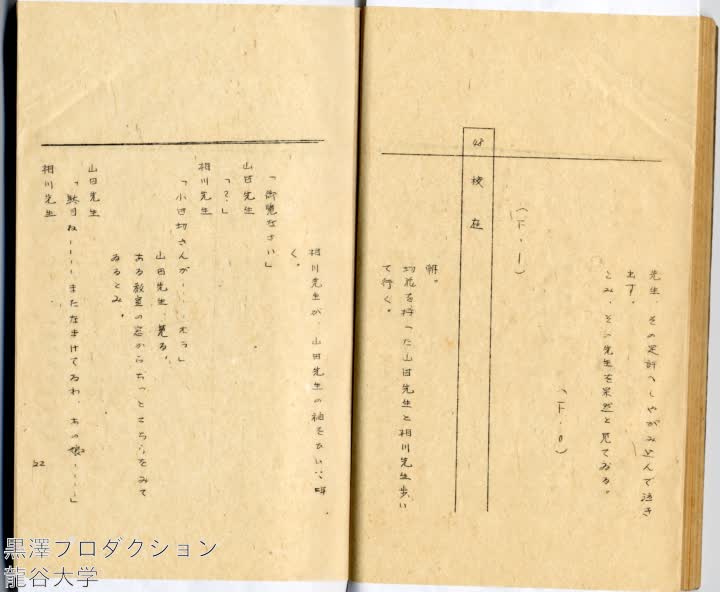 先生、その足許へしゃがみ込んで泣き
出す。
とみ、その先生を呆然と見てゐる。
(F・O)
(F・I)
48 校庭
朝。
切花を持った山田先生と相川先生歩い
て行く。
相川先生が 山田先生の袖をひいて呼
く。
「御覧なさい」
山田先生
「?」
相川先生
「小田切さんが……ホラ」
山田先生、見る。
ある教室の窓からぢっとこちらをみて
ゐるとみ。
山田先生
「駄目ね……またなまけてるわ、あの娘……」
相川先生
22
黒澤プロダクション
龍谷大学